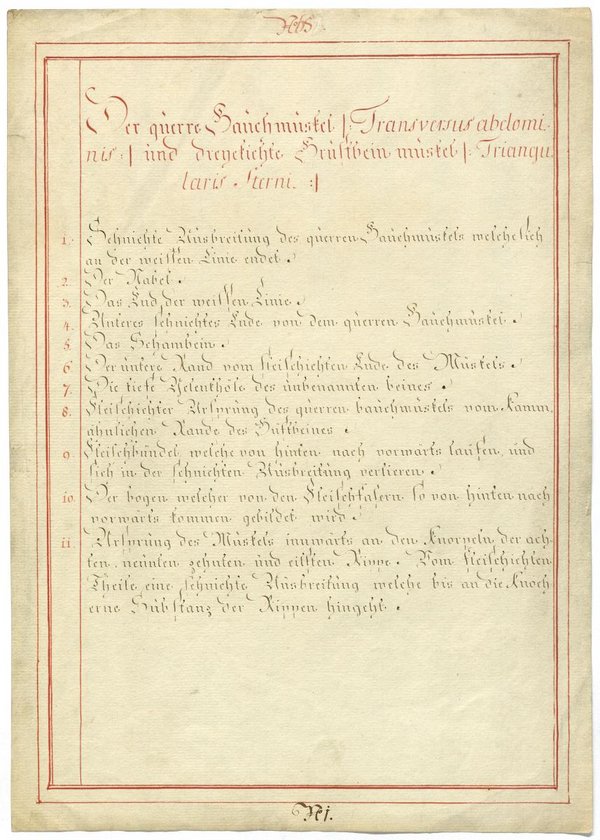 Der querre Bauchmuskel |: Transversus abdomi-
nis :| und dreyekichte Brustbein muskel |: Triangu
laris Sterni. :|
1. Sehnichte Ausbreitung des querren Bauchmuskels welche sich
an der weissen Linie endet.
2. Der Nabel.
3. Das End der weissen Linie.
4. Unteres sehnichtes Ende von dem querren Bauchmuskel.
5. Das Schambein.
6. Der untere Rand vom fleischichten Ende des Muskels.
7. Die tiefe Gelenkhöle des unbenannten beines.
8. Fleischichter Ursprung des querren bauchmuskels vom kamm
ähnlichen Rande des Hüftbeines.
9. Fleischbündel, welche von hinten nach vorwärts laufen, und
sich in der sehnichten Ausbreitung verlieren.
10. Der bogen welcher von den Fleischfasern so von hinten nach
vorwärts kommen gebildet wird.
11. Ursprung des Muskels innwärts an den Knorpeln der ach-
ten, neunten zehnten und eilften Rippe. Vom fleischichten
Theile eine sehnichte Ausbreitung welche bis an die Knöch
erne Substanz der Rippen hingeht.
N 1.